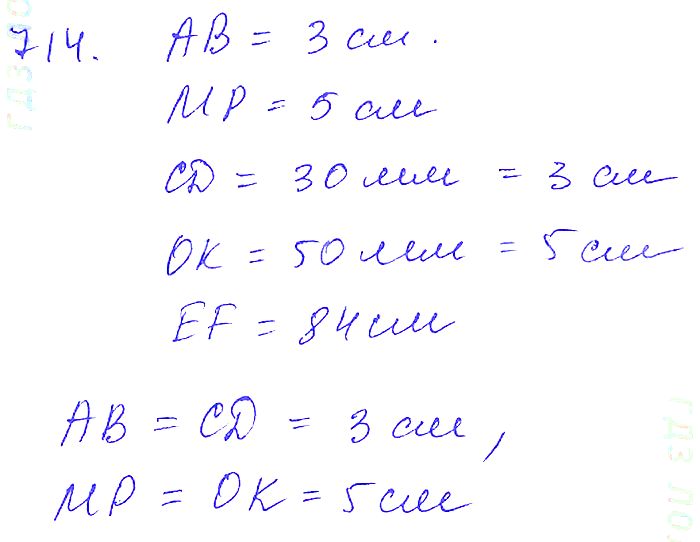 714. AB = 3 см.
MP = 5 см
CD = 30 мм = 3 см
OK = 50 мм = 5 см
EF = 84 см
AB = CD = 3 см,
MP = OK = 5 см